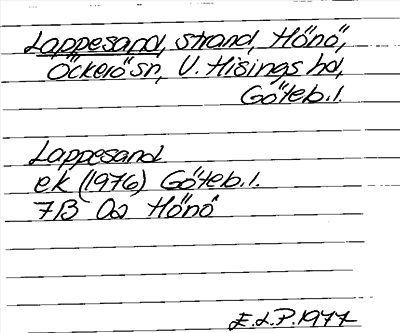 Lappesand, strand, Hönö,
Öckerö sn, V. Hisings hd,
Göteb.l.
Lappesand
ek (1976) Göteb.l.
7B Oa Hönö
E.L.P. 1977